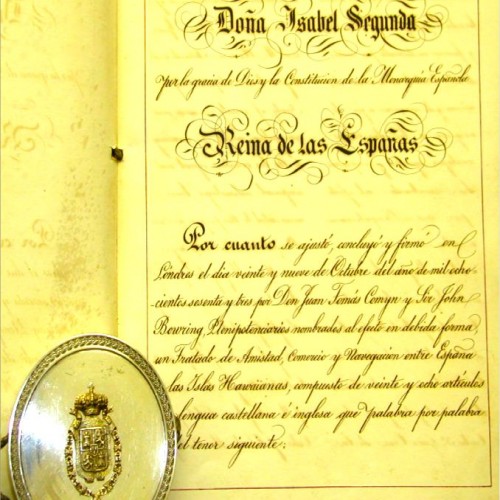 Doña Isabel Segunda
por la gracia de Dios y la Constitucion de la Monarquia Española
Reina de las Españas
Por cuanto se ajustó, concluyó y firmó en
Lóndres el dia veinte y nueve de Octubre del año de mil ocho-
cientos sesenta y tres por Don Juan Tomás Comyn y Sir John
Bowring Plenipotenciarios nombrados al efecto en debida forma,
un Tratado de Amistad, Comercio y Navegacion entre España
las Islas Hawaiianas, compuesto de veinte y ocho artículos
lengua castellana é inglesa que palabra por palabra
el tenor siguiente: